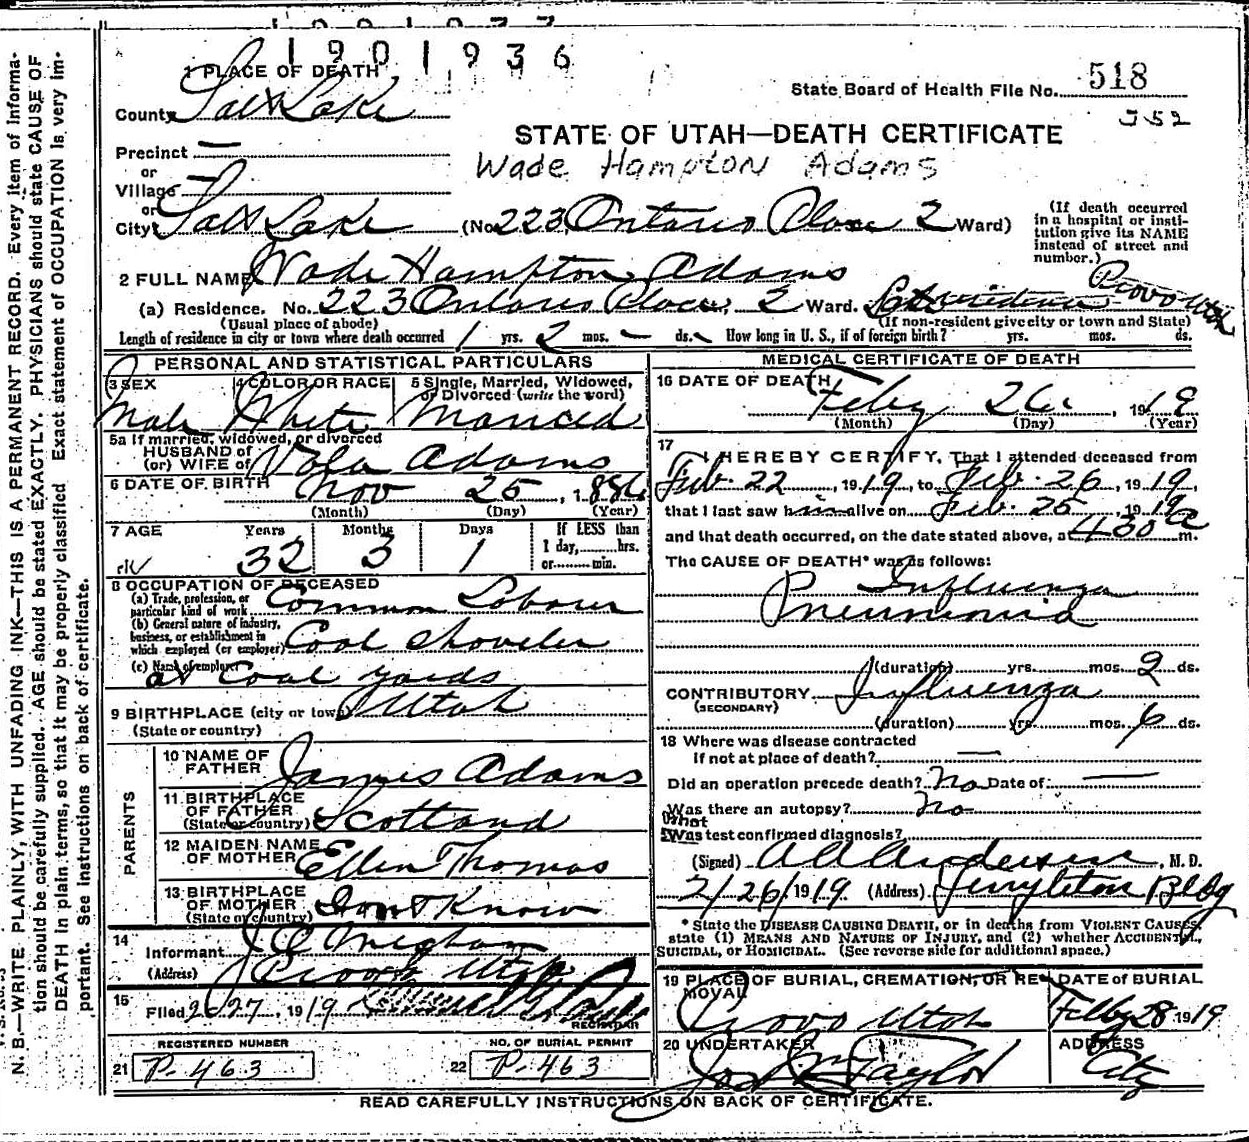 1901936
1 PLACE OF DEATH
State Board of Health File No. 518
County Salt Lake
J52
STATE OF UTAH—DEATH CERTIFICATE
Precinct —
Wade Hampton Adams
or
Village —
or
City Salt Lake (No. 223, Ontario Place 2 Ward)
(If death occurred in a hospital or institution give its NAME instead of street and number.)
2 FULL NAME Wade Hampton Adams
(a) Residence. No. 223 Ontario Place, 2 Ward. Provo Utah
(Usual place of abode) (If non-resident give city or town and State)
Length of residence in city or town where death occurred 1 yrs. 2 mos. - ds. How long in U. S., if of foreign birth? yrs. mos. ds.
PERSONAL AND STATISTICAL PARTICULARS
3 SEX 4 COLOR OR RACE 5 Single, Married, Widowed, or Divorced (write the word)
Male White Married
5a If married, widowed, or divorced
HUSBAND of
(or) WIFE of Adams
6 DATE OF BIRTH Nov 25, 1886
(Month) (Day) (Year)
7 AGE Years Months Days If LESS than
32 3 1 1 day,........hrs.
or..........min.
8 OCCUPATION OF DECEASED
(a) Trade, profession, or particular kind of work Common Labour
(b) General nature of industry, business, or establishment in which employed (or employer) Coal Shoveler
(c) Name of employer at Coal yards
9 BIRTHPLACE (city or town) Utah
(State or country)
PARENTS
10 NAME OF FATHER James Adams
11 BIRTHPLACE OF FATHER (State or country) Scotland
12 MAIDEN NAME OF MOTHER Ellen Thomas
13 BIRTHPLACE OF MOTHER (State or country) Dont Know
14
Informant J
(Address) Provo Utah
15
Filed 2 27, 1919
REGISTRAR
REGISTERED NUMBER NO. OF BURIAL PERMIT
21 P-463 22 P-463
MEDICAL CERTIFICATE OF DEATH
16 DATE OF DEATH
Feby 26, 1919
(Month) (Day) (Year)
17
I HEREBY CERTIFY, That I attended deceased from
Feb. 22, 1919, to Feb. 26, 1919,
that I last saw him alive on Feb. 25, 1919
and that death occurred, on the date stated above, at 430 a m.
The CAUSE OF DEATH* was as follows:
Influenza
Pneumonia
(duration) yrs. mos. 2 ds.
CONTRIBUTORY Influenza
(SECONDARY)
(duration) yrs. mos. 6 ds.
18 Where was disease contracted
if not at place of death? —
Did an operation precede death? No Date of: —
Was there an autopsy? no
What
Was test confirmed diagnosis?
(Signed) A A Anderson, M. D.
2/26/1919 (Address) Templeton Bldg
* State the DISEASE CAUSING DEATH, or in deaths from VIOLENT CAUSES,
state (1) MEANS AND NATURE OF INJURY, and (2) whether ACCIDENTAL,
SUICIDAL, or HOMICIDAL. (See reverse side for additional space.)
19 PLACE OF BURIAL, CREMATION, OR REMOVAL DATE OF BURIAL
Provo Utah Feby 28 1919
20 UNDERTAKER ADDRESS
Jos Wm Taylor City
READ CAREFULLY INSTRUCTIONS ON BACK OF CERTIFICATE.
N. B.—WRITE PLAINLY, WITH UNFADING INK—THIS IS A PERMANENT RECORD. Every item of informa-
tion should be carefully supplied. AGE should be stated EXACTLY. PHYSICIANS should state CAUSE OF
DEATH in plain terms, so that it may be properly classified. Exact statement of OCCUPATION is very im-
portant. See instructions on back of certificate.